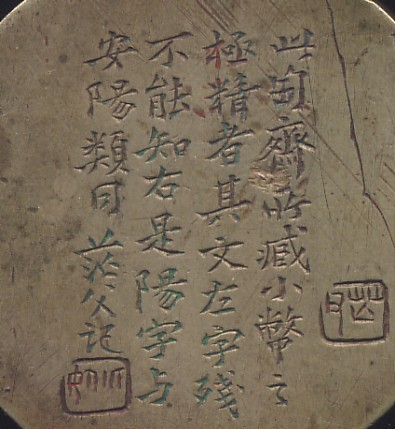 此匋齊所臧小幣之
極精者其文左字殘
不能知右是陽字与
安陽類同 茫父記